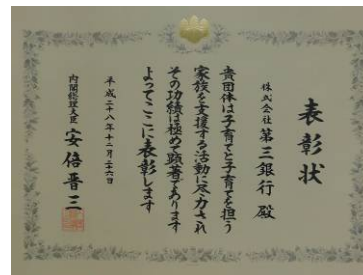 表彰状
株式会社 第三銀行 殿
貴団体は子育てと子育てを担う
家族を支援する活動に尽力され
その功績は極めて顕著であります
よってここに表彰します
平成二十八年十二月二十六日
内閣総理大臣 安倍晋三